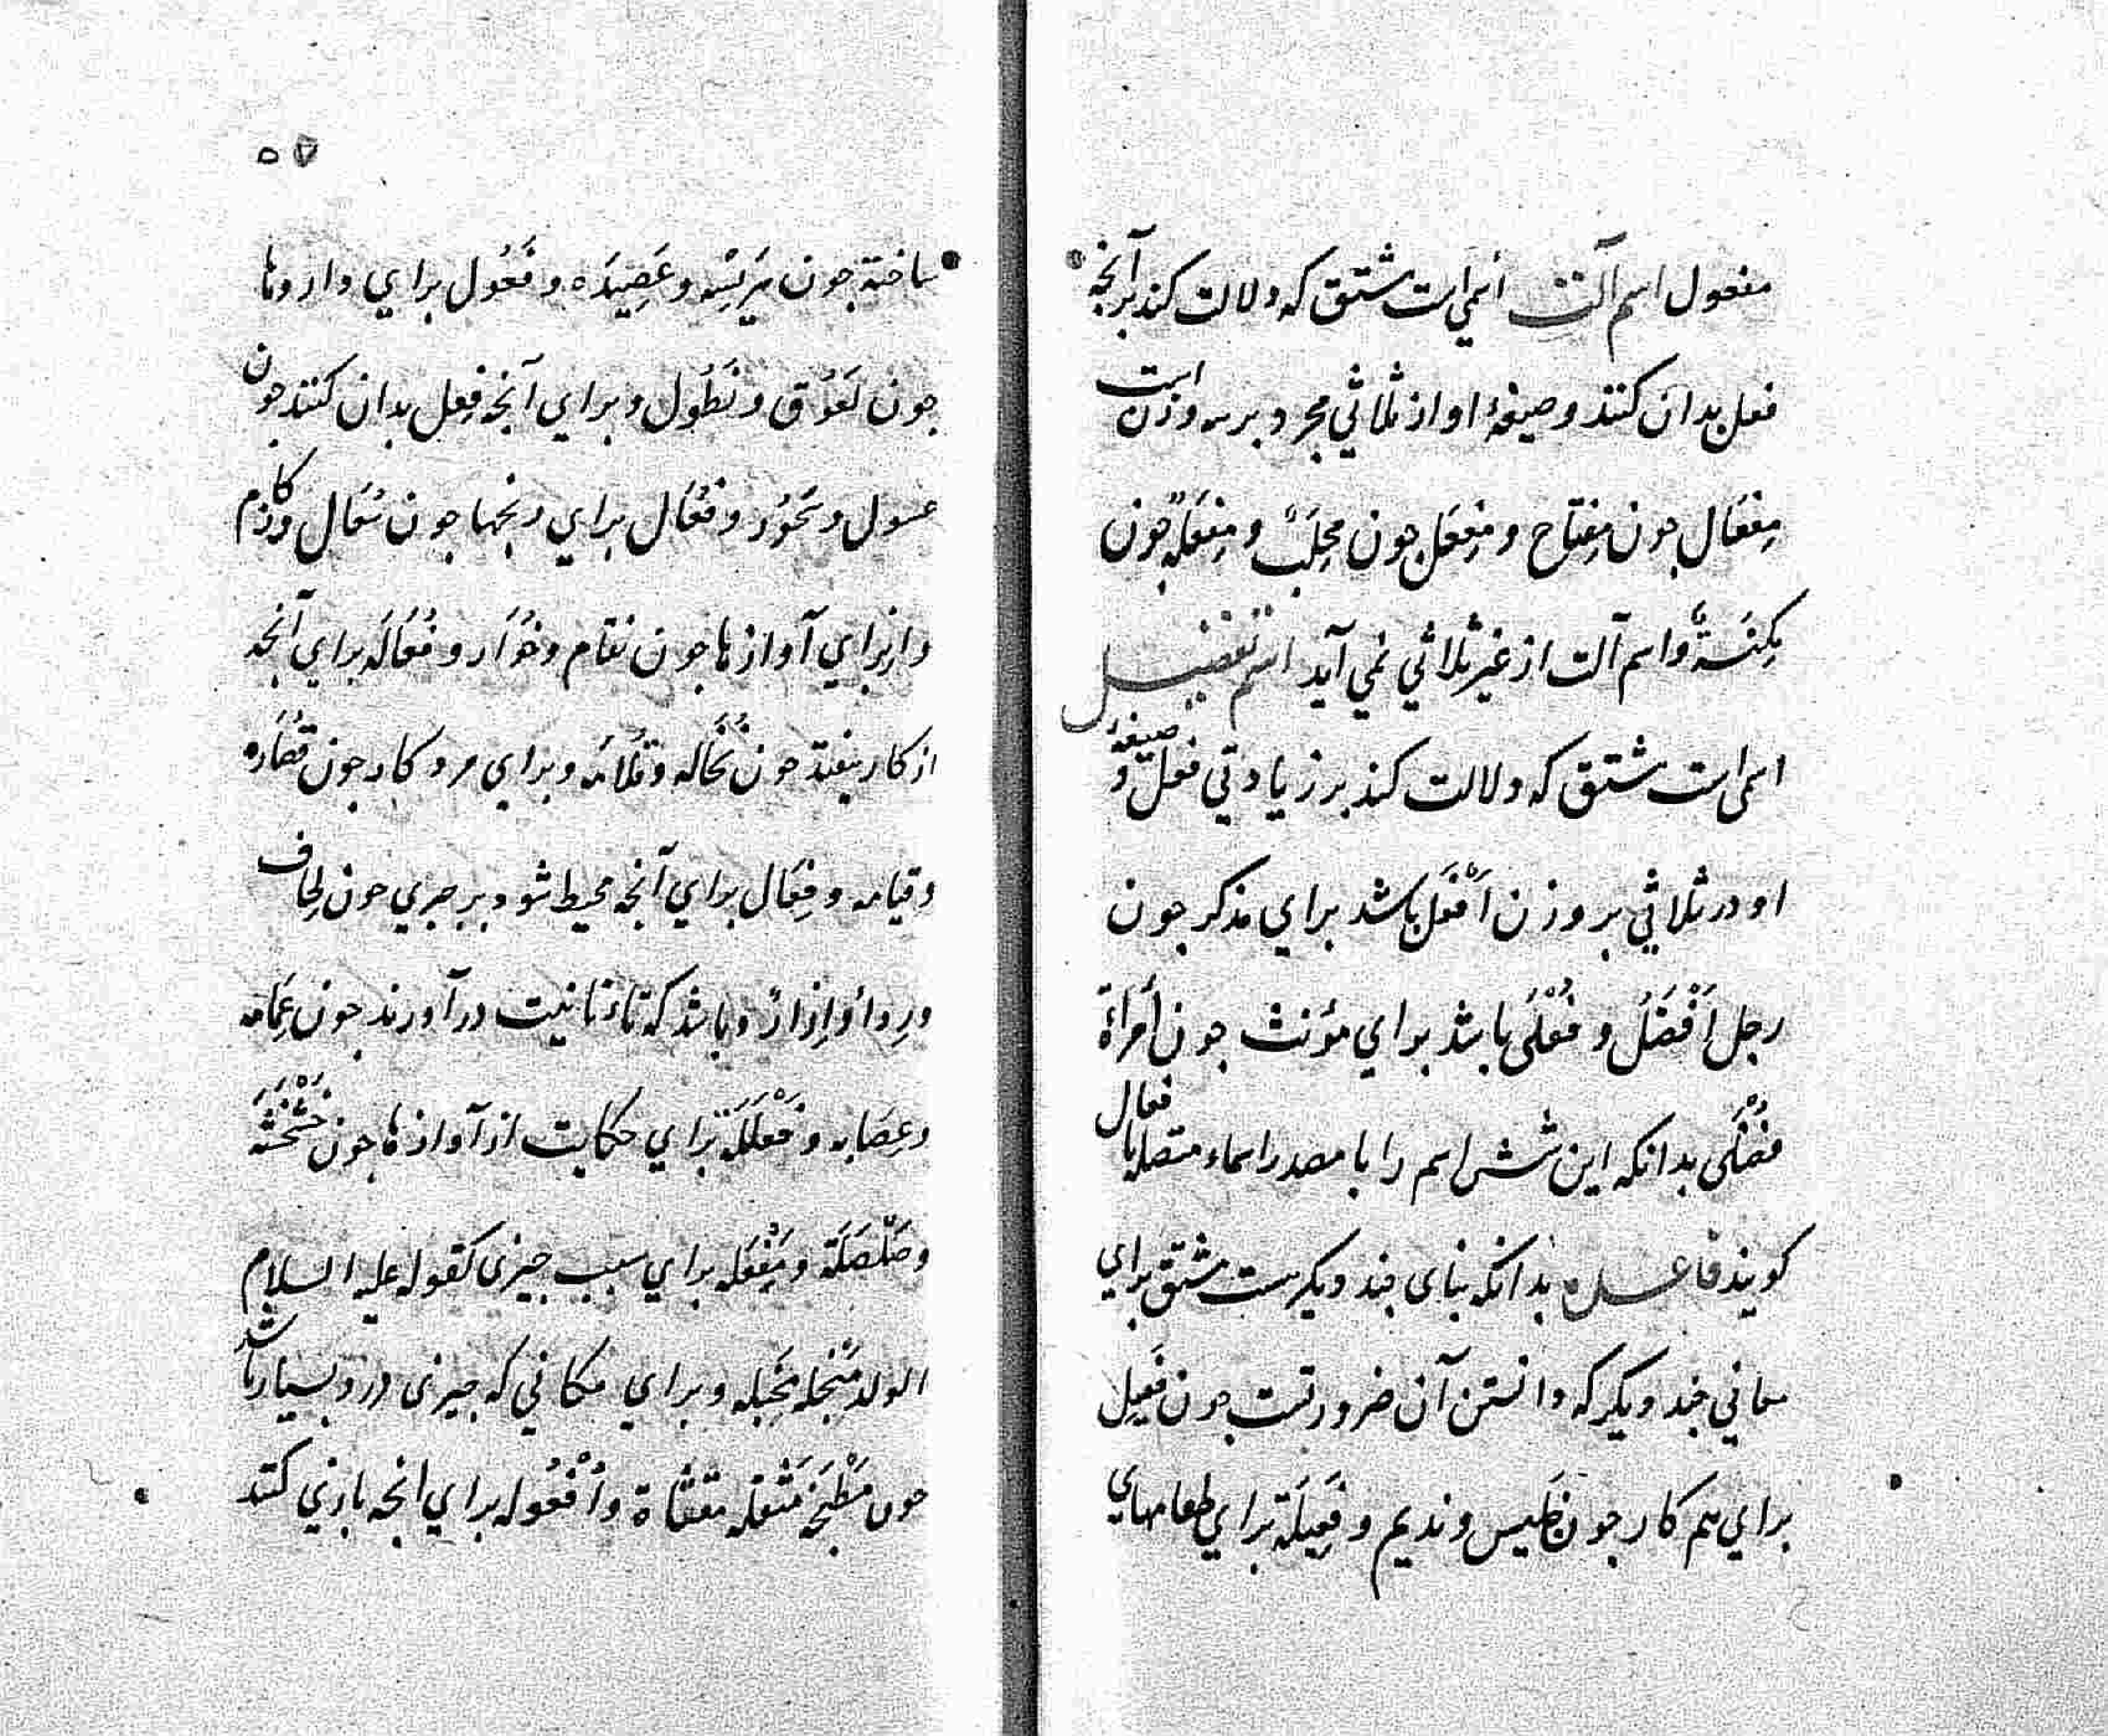 مفعول اسم آلت اسمی است مشتق که دلالت کند بر آنجه
فعل بدان کنند و صیغهٔ او از ثلاثي مجرد بر سه وزن است
مِفعَال جون مِفتاح و مِفعَل جون مِحلَبٌ و مِفعَلَةٌ جون
مِکنَسَةٌ و اسم آلت از غیر ثلاثي نمي آید اسم تفضیل
اسمی است مشتق که دلالت کند بر زیادتي فعل و صیغهٔ
او در ثلاثي بر وزن اَفْعَل باشد برای مذکر جون
رجل اَفْضَلُ و فُعْلَی باشد برای مؤنث جون اَمراَة
فُضْلَی بدانکه این شش اسم را با مصدر اسماء متصله بافعال
کویند فاعـــله بدانکه بنای جند دیکرست مشتق برای
معاني جند دیکر که دانستن آن ضرورتست جون فَعِیل
براي هم کار جون جَلیس و ندیم و فَعِیلَة براي طعامهاي
۵۷
ساخته جون هَرِیسَه و عَصِیدَه و فَعُول براي داروها
جون لَعُوق و نَطُول و براي آنجه فِعل بدان کنند جون
غسول و سَحُور و فُعَال براي رنجها جون سُعَال و زُکام
و از براي آوازها جون بُغام و خُوَار و فُعَالَه براي آنجه
از کار بیفتد جون نُخَاله و قُلامَه و براي مرد کار جون قصَّاره
و قیامه و فِعَال براي آنجه محیط شود بر جیزي جون لِحاف
و رِداء و اِزار و باشد که تاء تانیث درآورند جون عِمَامه
و عِصَابه و فَعْلَلَة براي حکایت از آوازها جون خَشْخَشَه
و صَلْصَلَة و مَفْعَلَه براي سبب جیزی کقوله علیه السلام
الولد مَبْخَلَه مَجْبَنه و براي مکاني که جیزی درو بسیار باشد
جون مَطْبَخَه مَثْعَله مقثاة و اُفْعُوله براي انجه بازي کنند